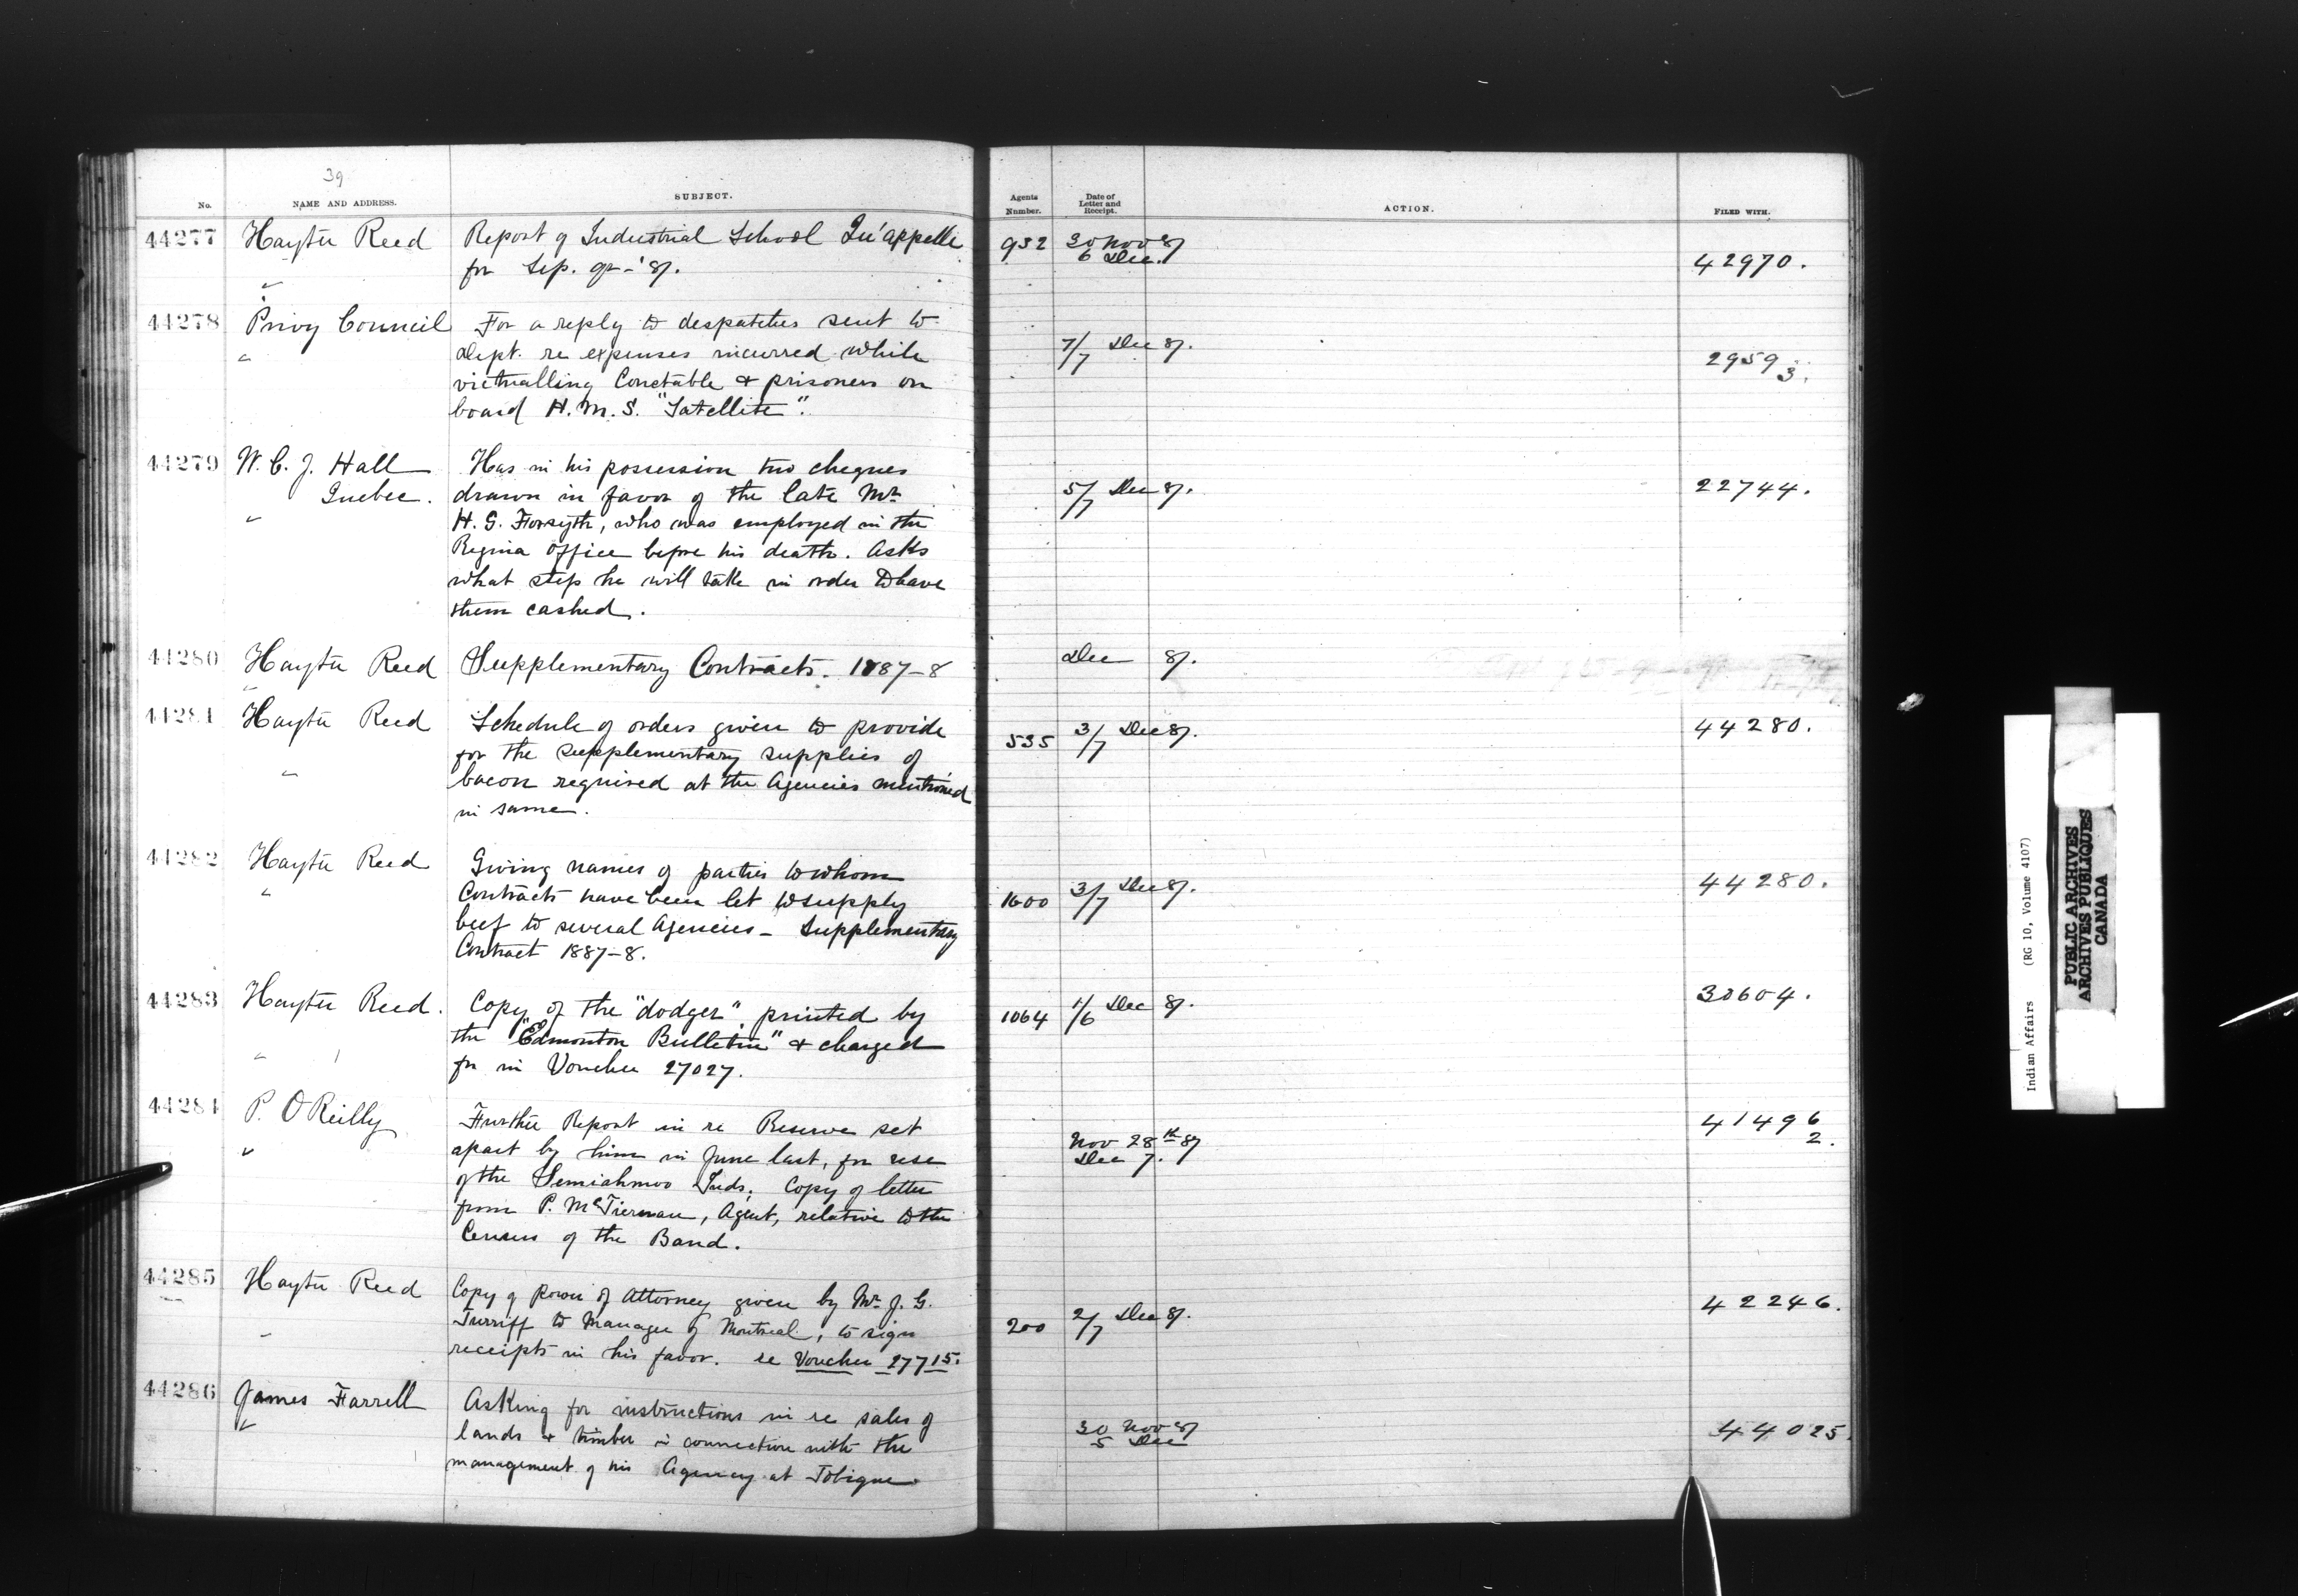 39
No. NAME AND ADDRESS. SUBJECT. Agents Number. Date of Letter and Receipt. ACTION. FILED WITH.
44277 Hayter Reed Report of Industrial School Qu'appelle 932 30 Nov 87
for Sep. qr - '87. 6 Dec. 42970.
"
44278 Privy Council For a reply to despatches sent to
" Dept. re expenses incurred while 7/7 Dec 87. 29593.
victualling Constable & prisoners on
board H.M.S. "Satellite".
44279 W. C. J. Hall Has in his possession two cheques
Quebec. drawn in favor of the late Mr 5/7 Dec 87. 22744.
" H. G. Forsyth, who was employed in the
Regina office before his death. Asks
what step he will take in order to have
them cashed.
44280 Hayter Reed Supplementary Contracts. 1887-8 Dec 87.
"
44281 Hayter Reed Schedule of orders given to provide 535 3/7 Dec 87. 44280.
for the supplementary supplies of
" bacon required at the Agencies mentioned
in same.
44282 Hayter Reed Giving names of parties to whom
" Contracts have been let to supply 1600 3/7 Dec 87. 44280.
beef to several Agencies - Supplementary
Contract 1887-8.
44283 Hayter Reed. Copy of the "dodger" printed by 1064 1/6 Dec 87. 30604.
the "Edmonton Bulletin" & charged
" for in Voucher 27027.
44284 P. O'Reilly Further Report in re Reserve set 41496
2.
" apart by him in June last, for use Nov 28th 87
of the Semiahmoo Inds; Copy of letter Dec 7.
from P. McTiernan, Agent, relative to the
Census of the Band.
44285 Hayter Reed Copy of Power of Attorney given by Mr. J. G. 42246.
" Turriff to Manager of Montreal, to sign 200 2/7 Dec 87.
receipts in his favor. re Voucher 27715.
44286 James Farrell Asking for instructions in re sales of
" lands & timber in connection with the 30 Nov 87 44025.
management of his Agency at Tobique 5 Dec
Indian Affairs (RG 10, Volume 4107)
PUBLIC ARCHIVES
ARCHIVES PUBLIQUES
CANADA